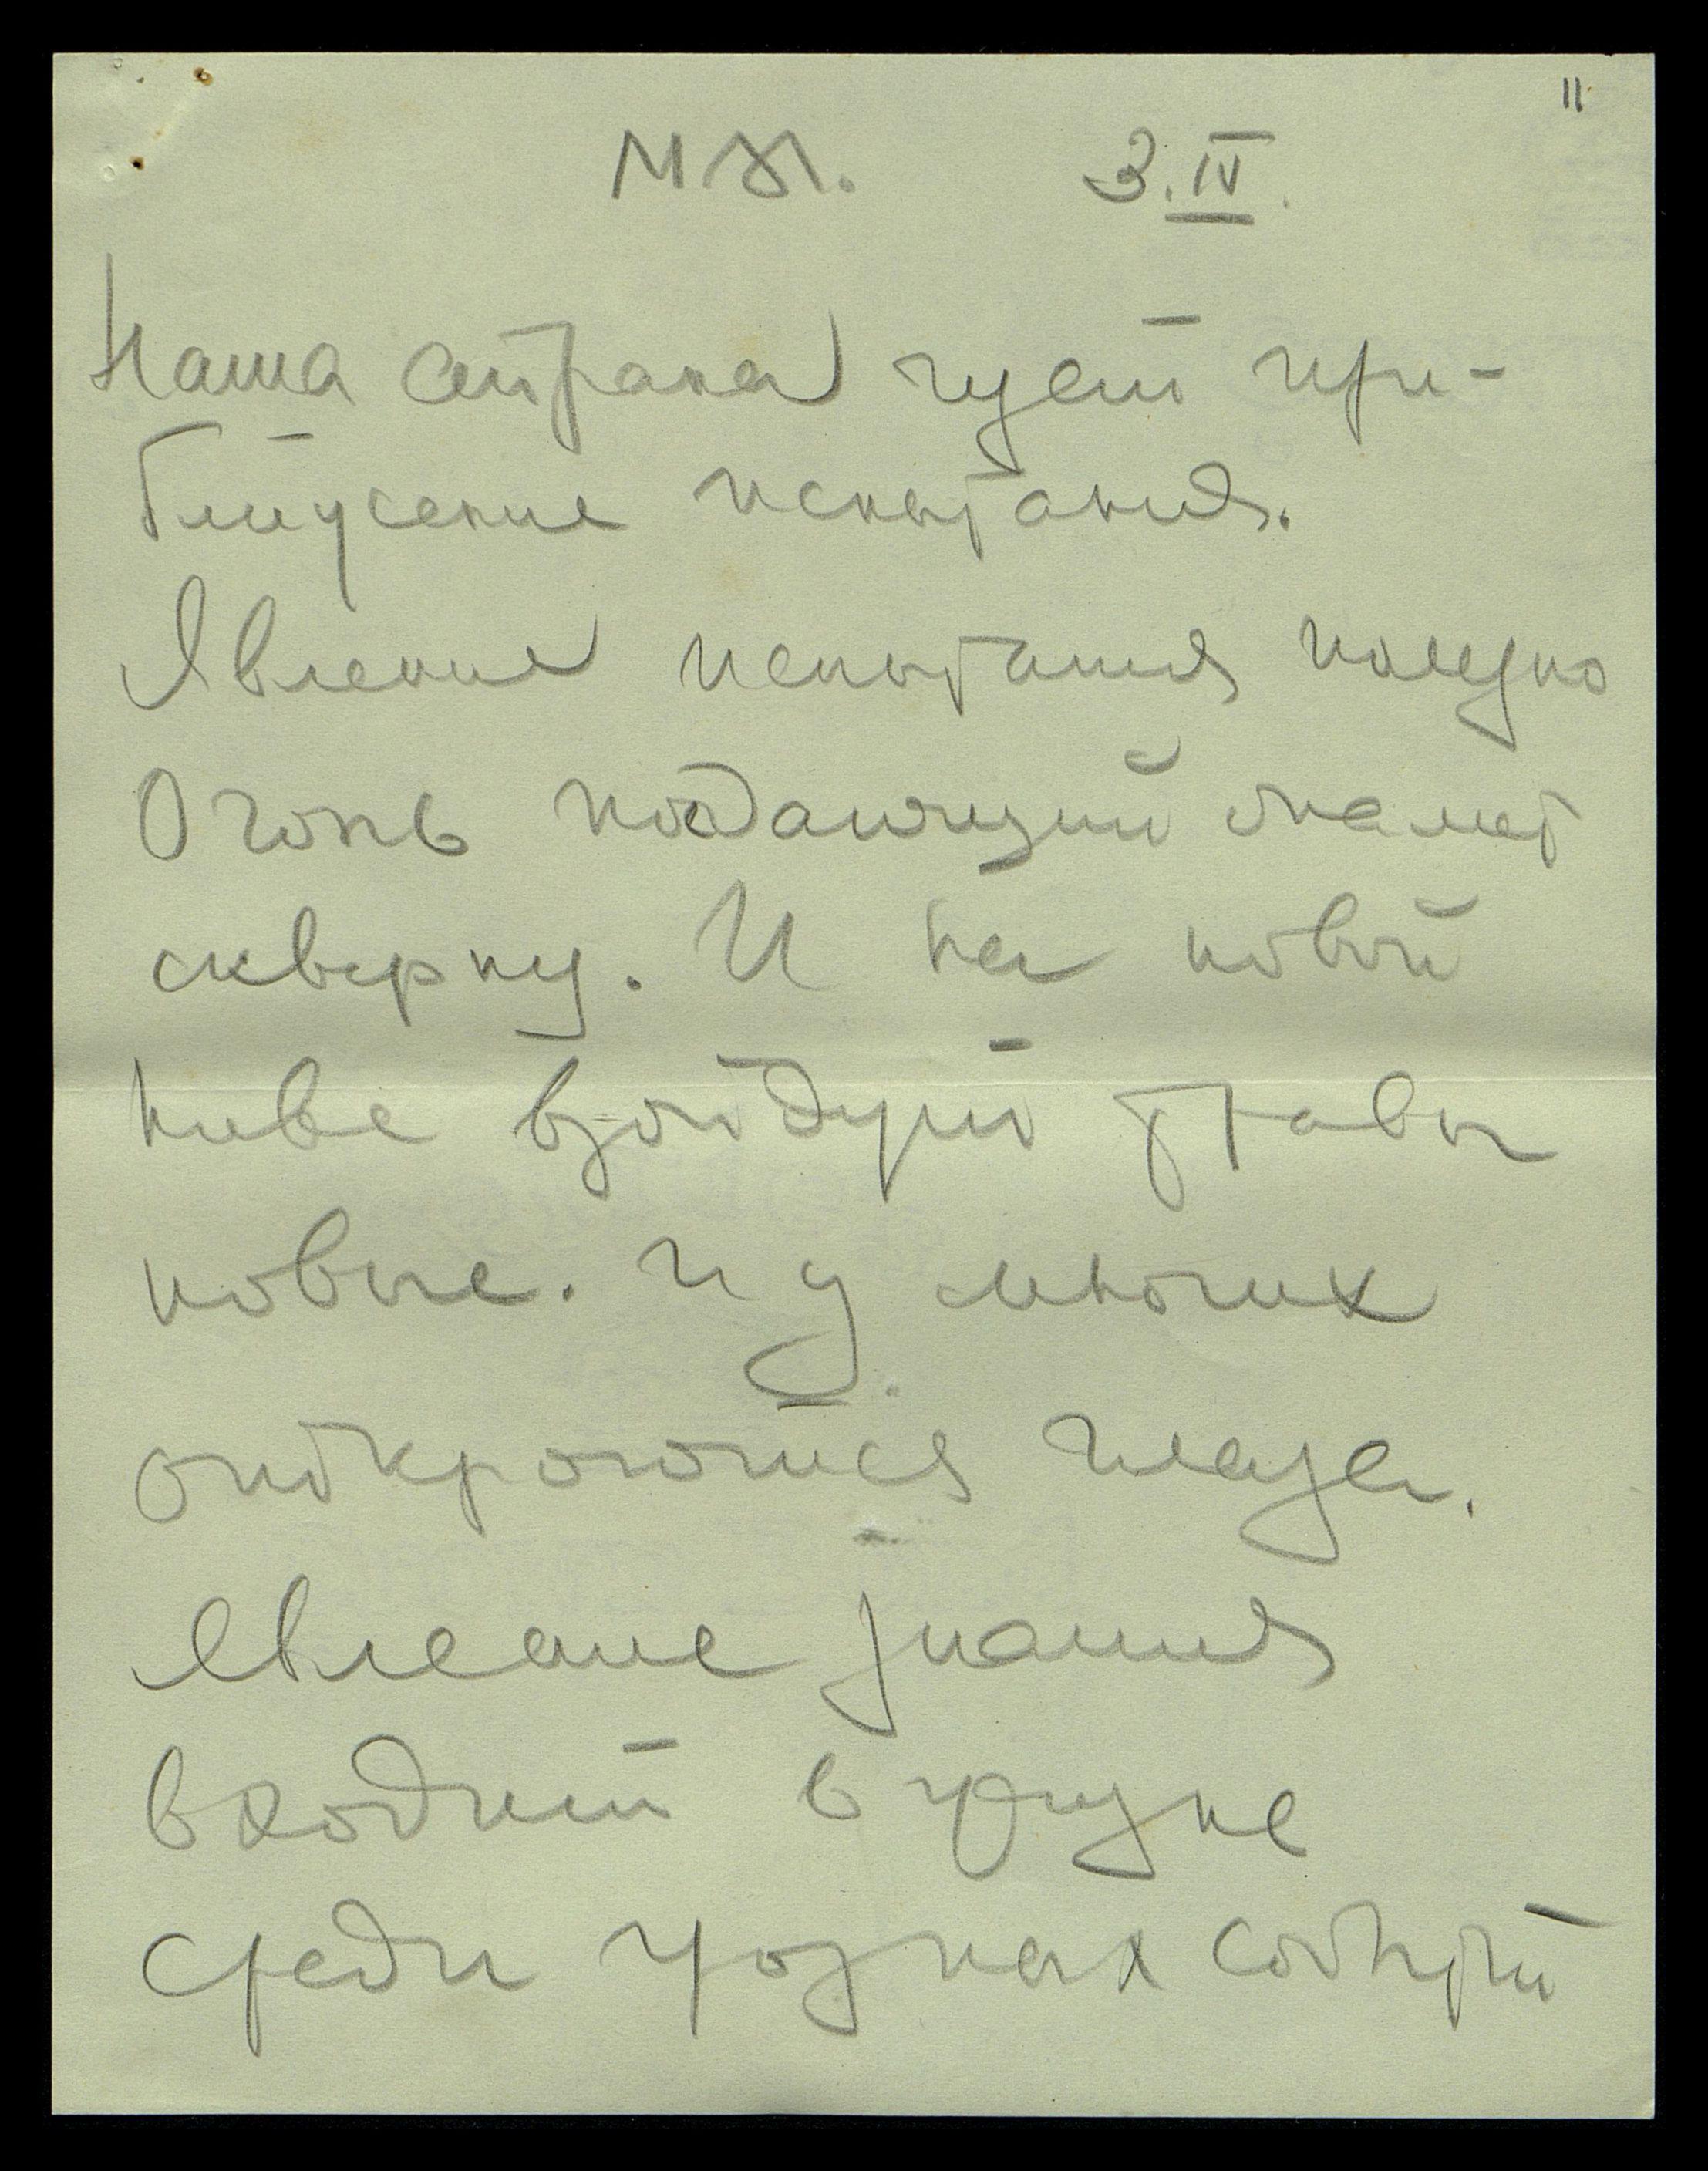 11
МЖ. 3.IV.
Наша страна чует при-
ближение испытания.
Явление испытания полезно
Огонь поедающий опалит
скверну. И на новой
ниве взойдут травы
новые. И у многих
откроются глаза.
Явление знания
входит в жизнь
среди грозных событий